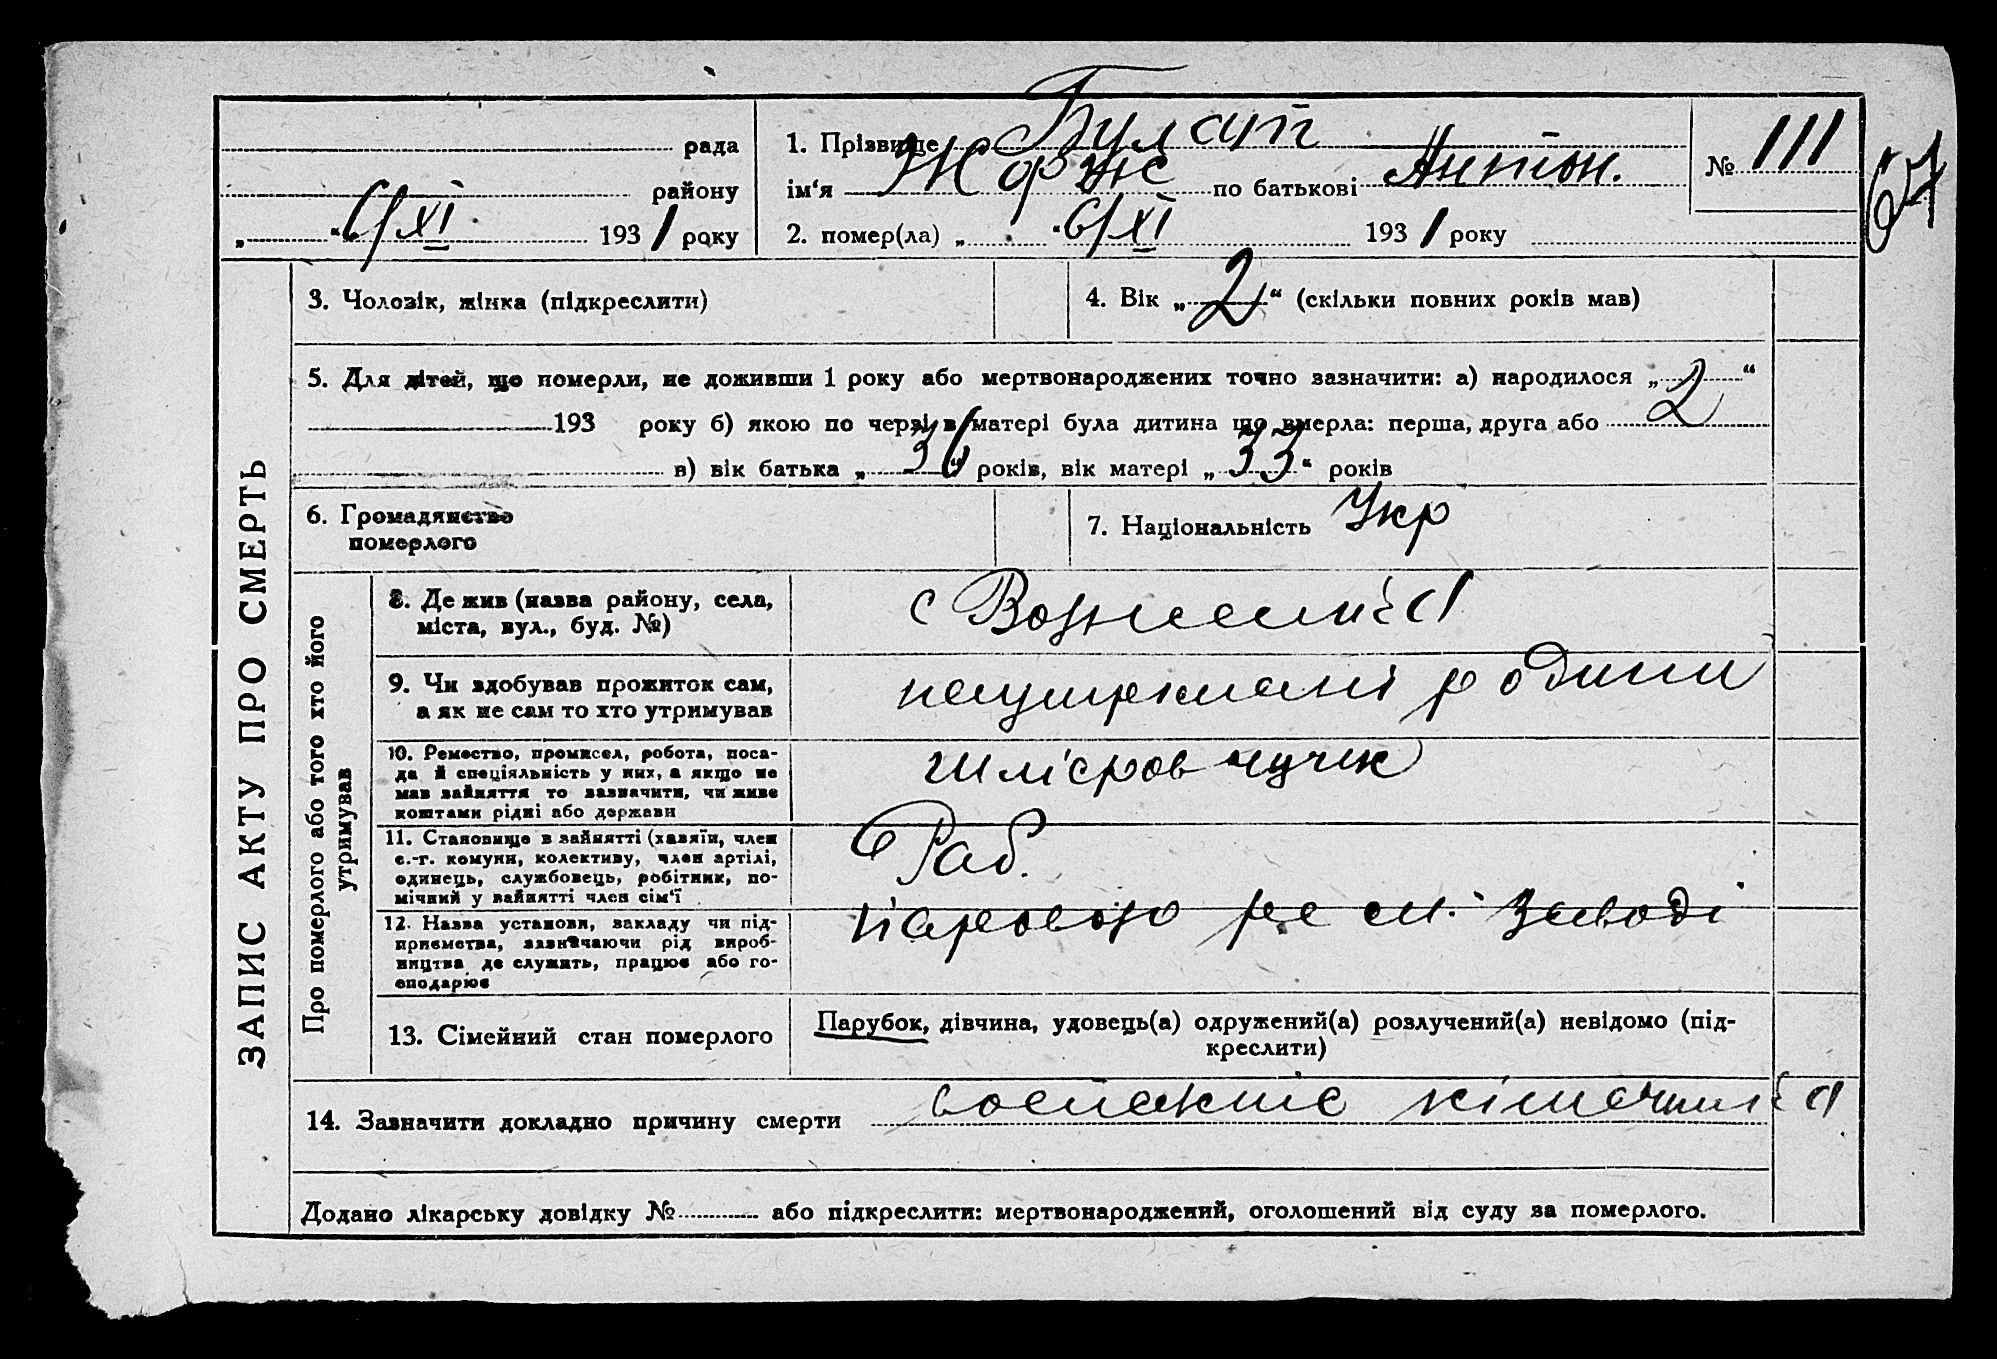 ЗАПИС АКТУ ПРО СМЕРТЬ
рада
району
„ “ 6/XI 1931 року
1. Прізвище
ім‘я Жорж по батькові Антон.
2. помер(ла) „ “ 6/XI 1931 року
№ 111
64
3. Чоловік, жінка (підкреслити)
4. Вік „ 2 “ (скільки повних років мав)
5. Для дітей, що померли, не доживши 1 року або мертвонароджених точно зазначити: а) народилося „ “
193 року б) якою по черзі в матері була дитина що вмерла: перша, друга або 2
в) вік батька „ 36 “ років, вік матері „ 33 “ років
6. Громадянство
померлого
7. Національність Укр
Про померлого або того хто його
утримував
8. Де жив (назва району, села,
міста, вул., буд. №)
с
9. Чи здобував прожиток сам,
а як не сам то хто утримував
родини
10. Ремество, промисел, робота, поса-
да й спеціяльність у них, а якщо не
мав зайняття то зазначити, чи живе
коштами рідні або держави
11. Становище в зайнятті (хазяїн, член
с.-г. комуни, колективу, член артілі,
одинець, службовець, робітник, по-
мічний у зайнятті член сім‘ї
Раб.
12. Назва установи, закладу чи під-
приємства, зазначаючи рід вироб-
ництва де служить, працює або го-
сподарює
паровозо рем. заводі
13. Сімейний стан померлого
Парубок, дівчина, удовець(а) одружений(а) розлучений(а) невідомо (під-
креслити)
14. Зазначити докладно причину смерти
Додано лікарську довідку № або підкреслити: мертвонароджений, оголошений від суду за померлого.